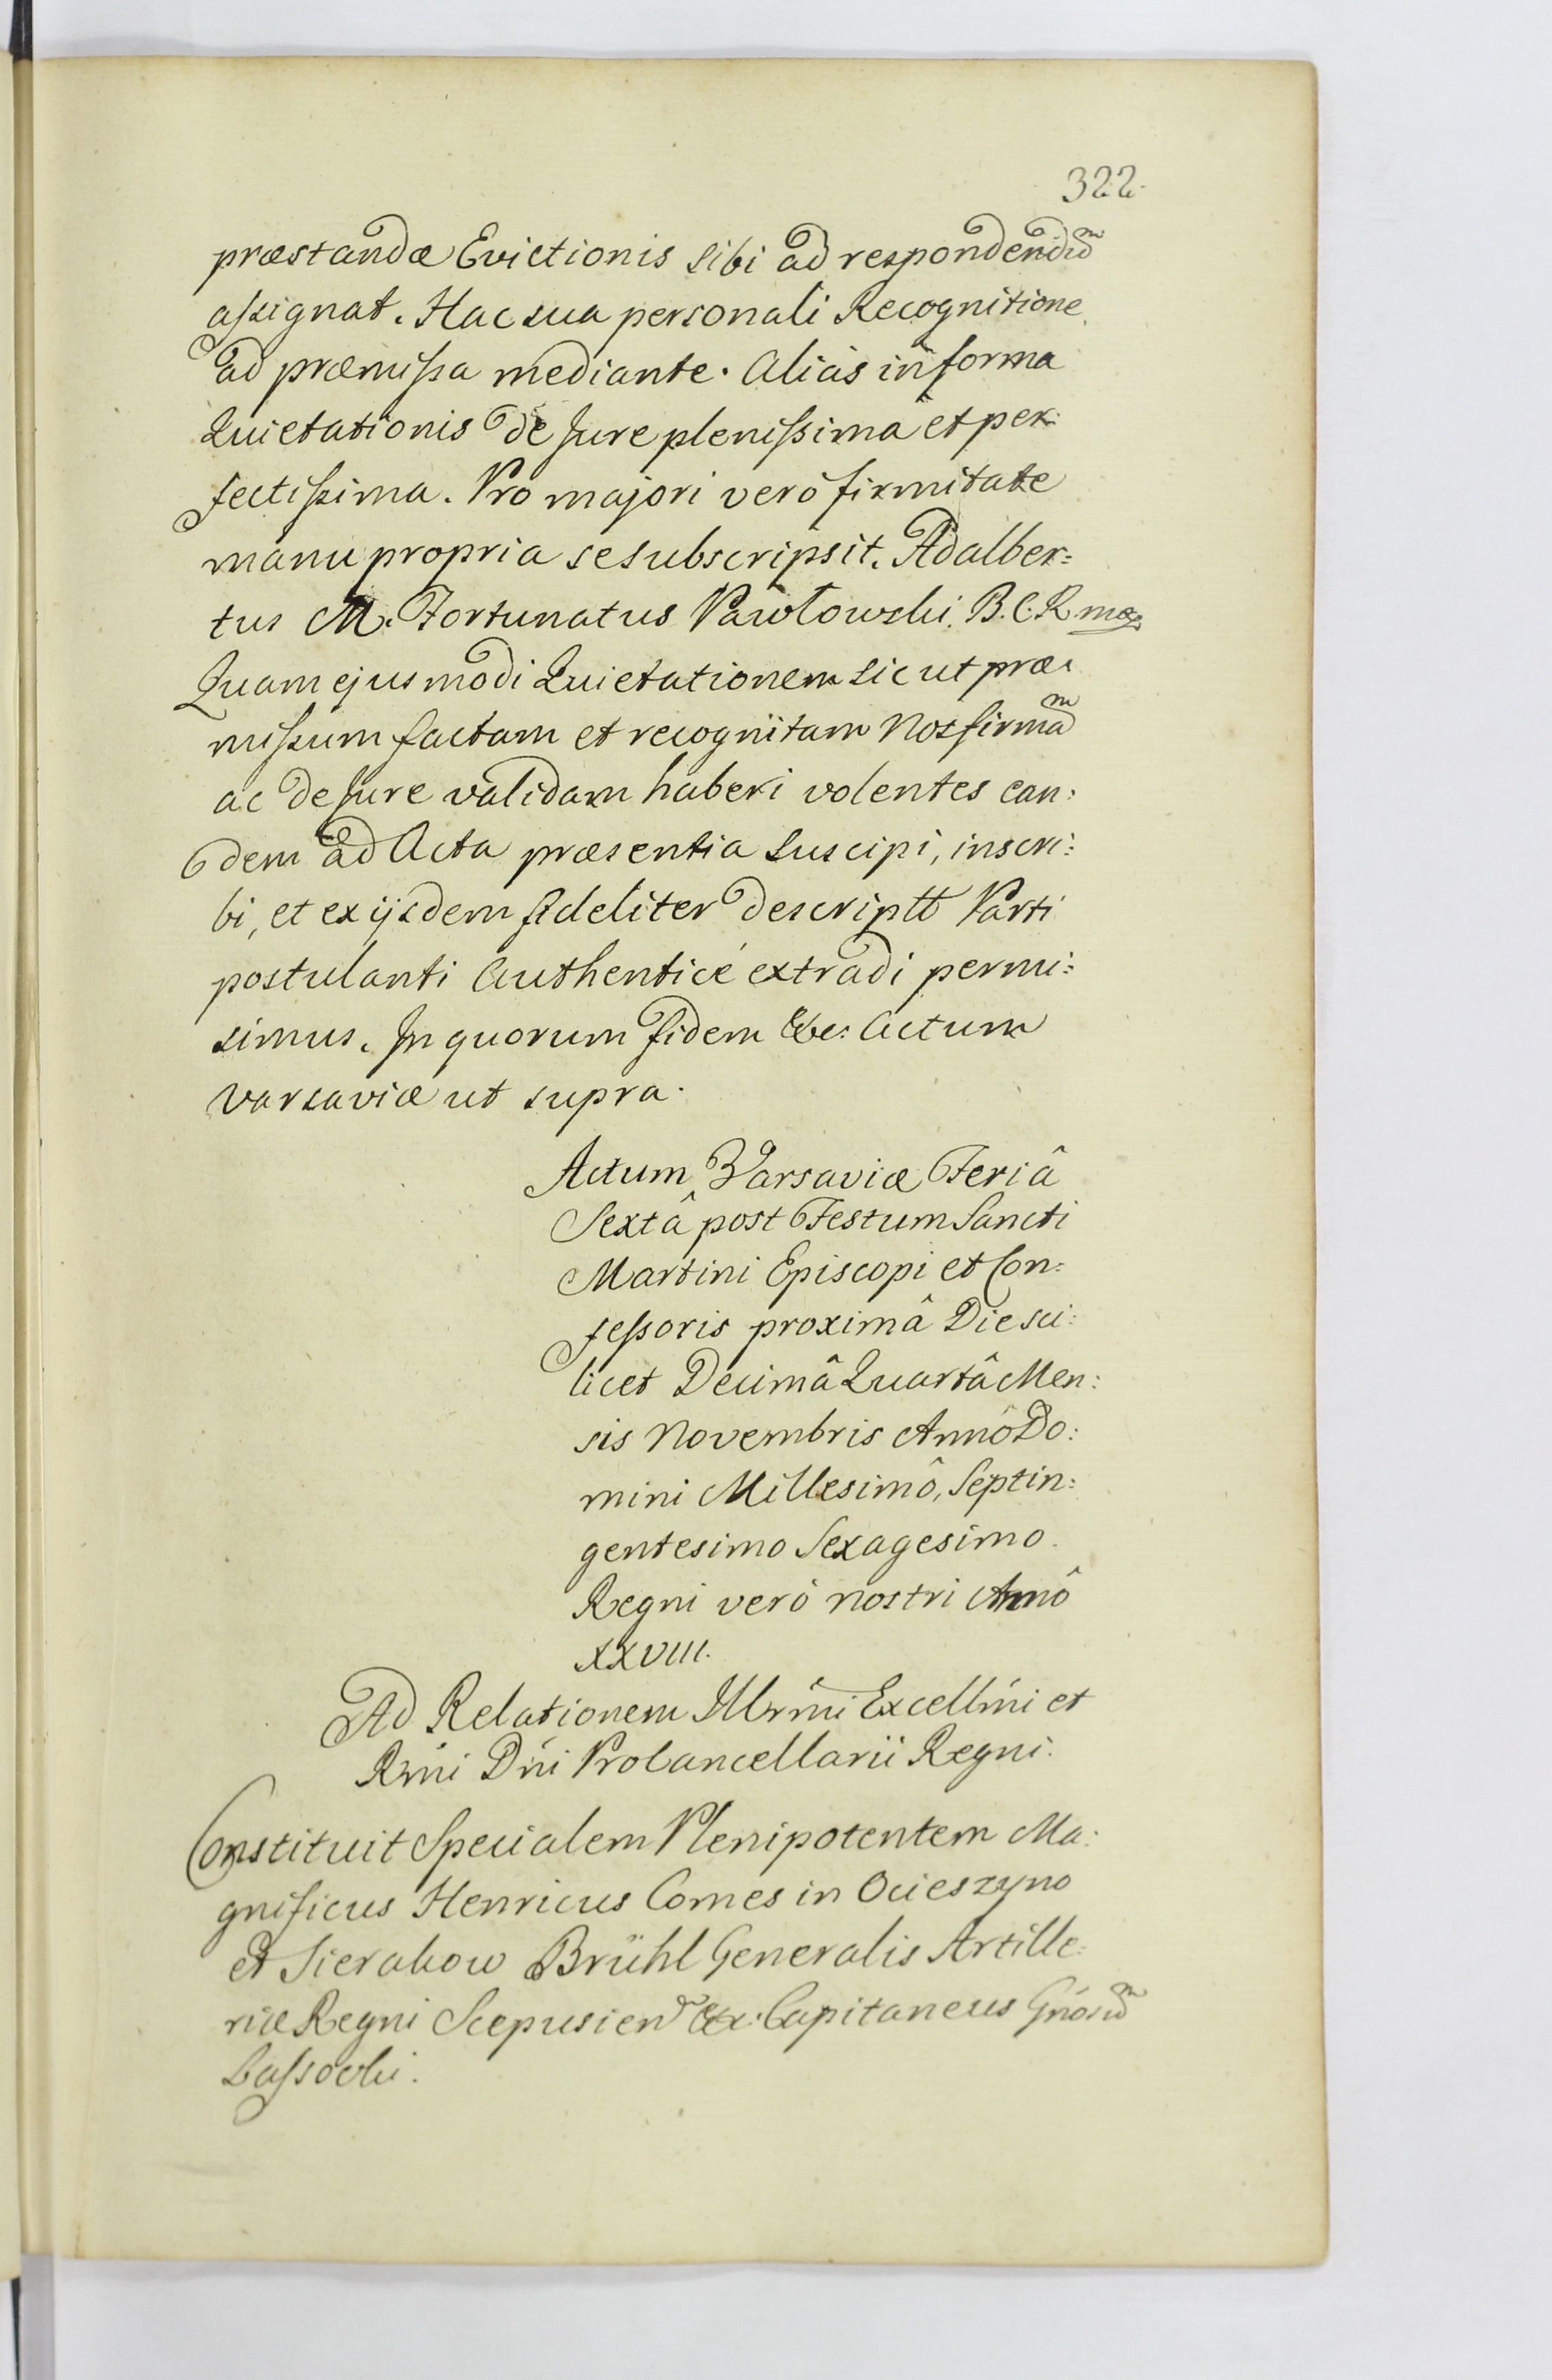 322.
præstandæ Evictionis sibi ad respondendũ
assignat. Hac sua personali Recognitione
ad præmissa mediante. Aliàs in forma
Quietationis de Jure plenissima et per:
fectissima. Pro majori verò firmitate
manu propria se subscripsit. Adalber=
tus M. Fortunatus Pawłowski. B.C.R. mp
Quam ejusmodi Quietationem sic ut præ:
missum factam et recognitam Nos firmã
ac de Jure validam haberi volentes ean:
dem ad Acta præsentia suscipi, inscri:
bi, et ex ijsdem fideliter descriptt Parti
postulanti Authenticè extradi permi:
simus. In quorum fidem &c: Actum
Varsaviæ ut supra.
Actum Varsaviæ Feriâ
Sextâ post Festum Sancti
Martini Episcopi et Con:
fessoris proximâ Die sci:
licet Decimâ Quartâ Men:
sis Novembris Annô Do:
mini Millesimô, Septin:
gentesimo Sexagesimo.
Regni verò nostri Annô
XXVIII.
Ad Relationem Illrmi Excellmi et
Rmi Dni ProCancellarii Regni.
Constituit Specialem Plenipotentem Ma:
gnificus Henricus Comes in Ocieszyno
et Sierakow Brühl Generalis Artille:
riæ Regni Scepusien &c: Capitaneus Gñosũ
Lassocki.